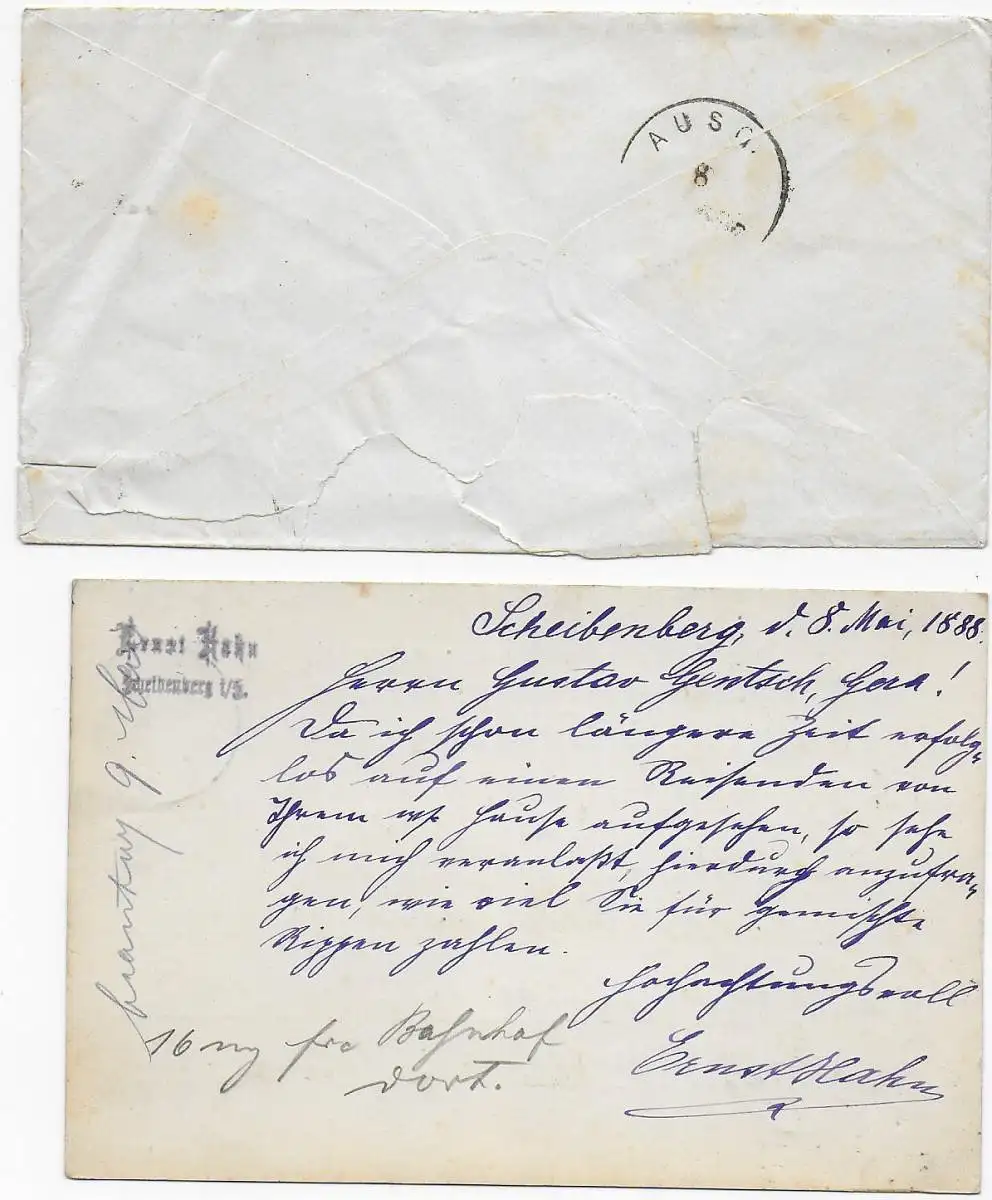 AUSG.
8
Ernst Hahn
Scheibenberg i/S.
Scheibenberg, d. 8. Mai, 1888.
Herrn Gustav Gentsch, Gera!
Da ich schon längere Zeit erfolg-
los auf einen Reisenden von
Ihrem Hause aufgesehen, so sehe
ich mich veranlaßt, hierdurch anzufra-
gen, wie viel Sie für gemischte
Rippen zahlen.
Hochachtungsvoll
Ernst Hahn
9. Mai
16 fre Bahnhof
dort.